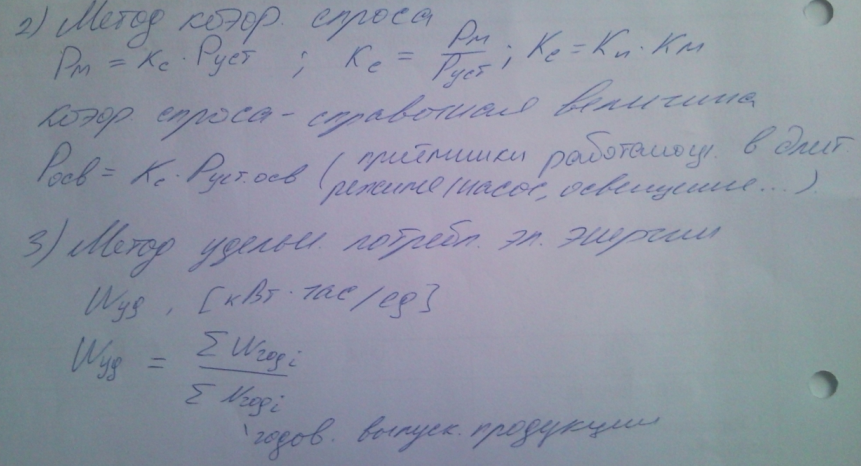 2) Метод коэф. спроса
Pм = Kс · Pуст ; Kс = Pм/Pуст ; Kс = Kи · Kм
коэф. спроса - справочная величина
Pосв = Kс · Pуст.осв (приёмники работающ. в длит.
режиме (насос, освещение...)
3) Метод удельн. потребл. эл. энергии
Wуд , [кВт·час/ед]
Wуд = ΣWгодi / ΣNгодi
годов. выпуск. продукции